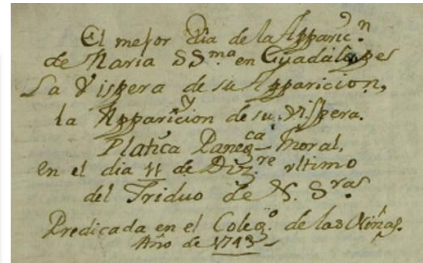 El mejor Dia de la Apparic.ⁿ
de Maria SS.ᵐᵃ en Guadalupe es
La Vispera de su Apparicion,
la Apparicion de su Vispera.
Platica Paneg.ᶜᵃ Moral,
en el dia 11 de Diz.ʳᵉ ultimo
del Triduo de N. S.ʳᵃˢ
Predicada en el Coleg.º de las Niñas.
Año de 1743